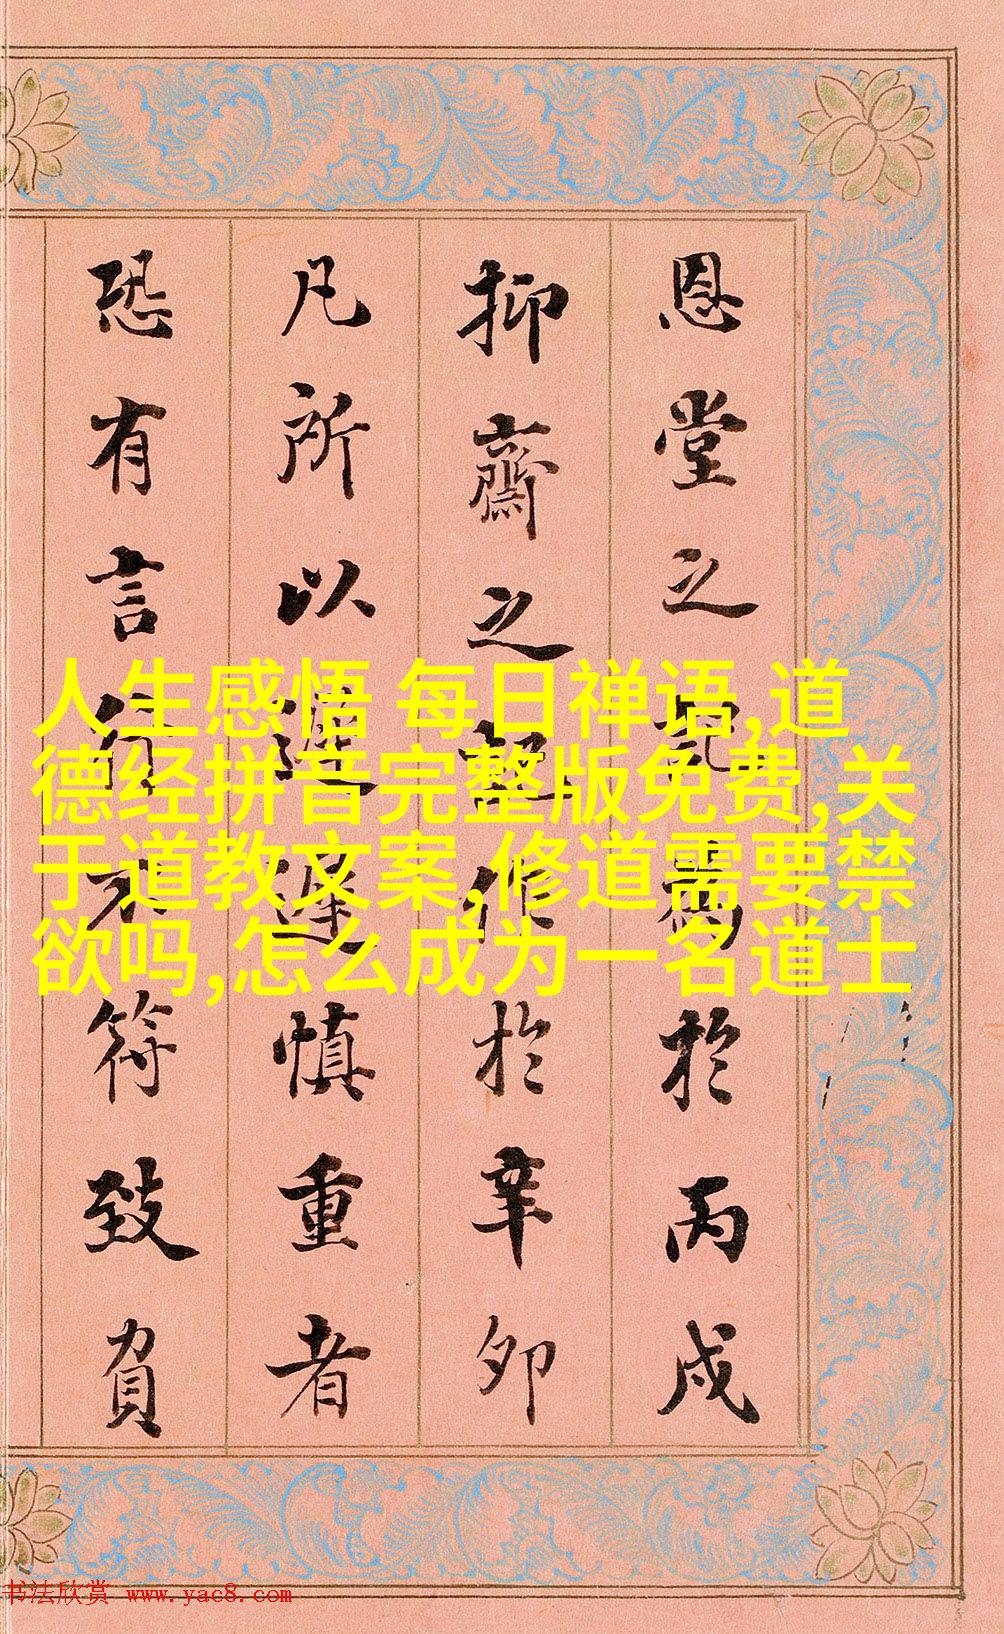 恩堂之爲於丙戌
抑齋之記作於辛卯
凡所以遲遲慎重者
恐有言行不符致負
人生感悟 每日禅语,道
德经拼音完整版免费,关
于道教文案,修道需要禁
欲吗,怎么成为一名道士
书法欣赏 www.yac8.com